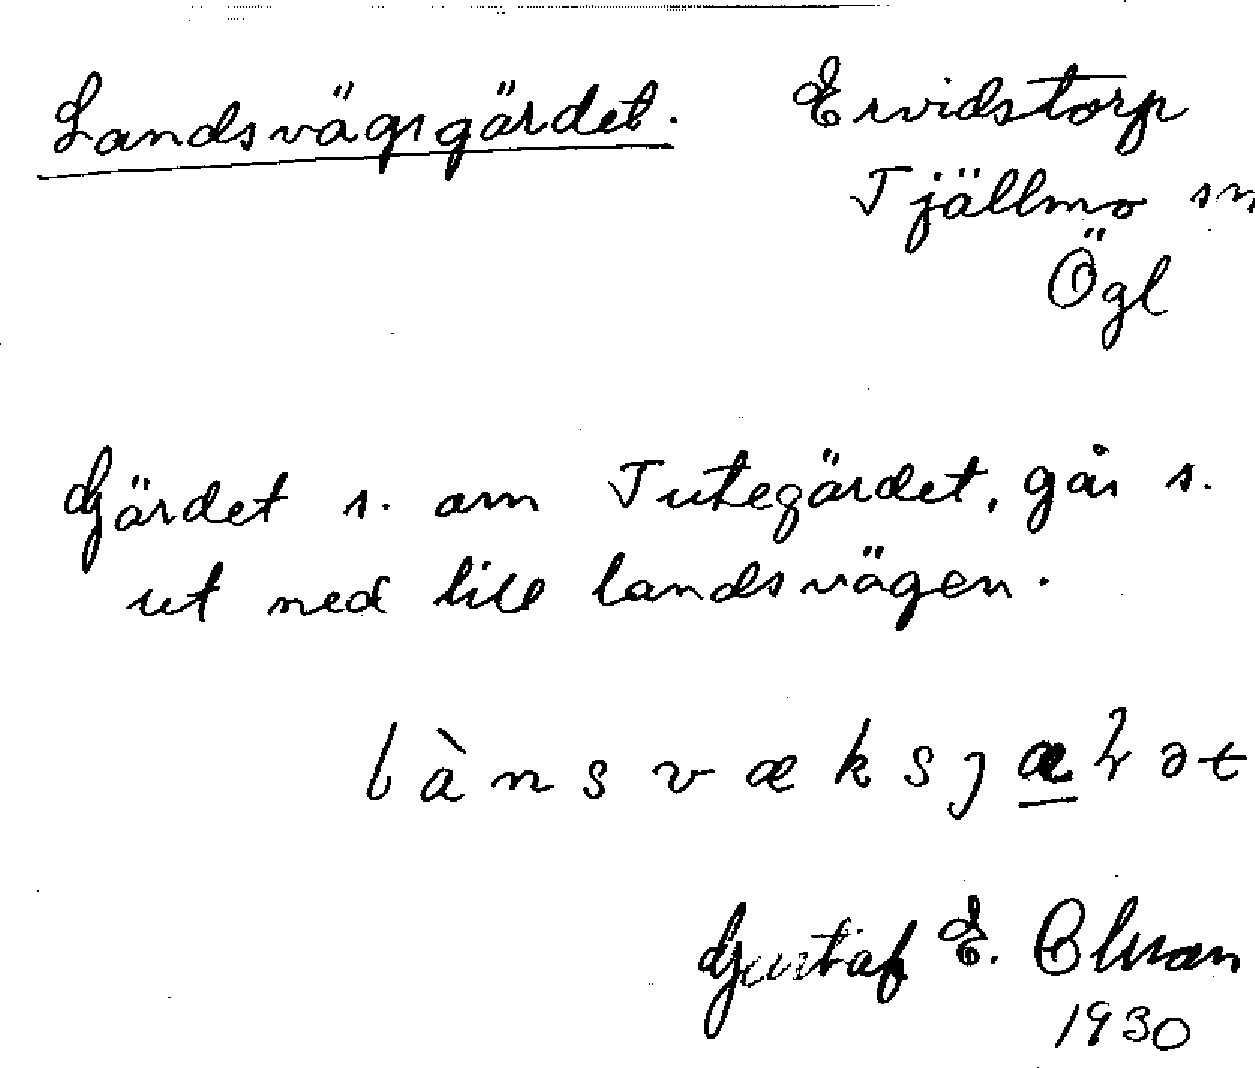 Landsvägsgärdet. Ervidstorp
Tjällmo sn
Ögl
Gärdet s. om Tutegärdet, går s.
ut ned till landsvägen.
lànsvæksjæ̲ɽət
Gustaf E. Olsson
1930